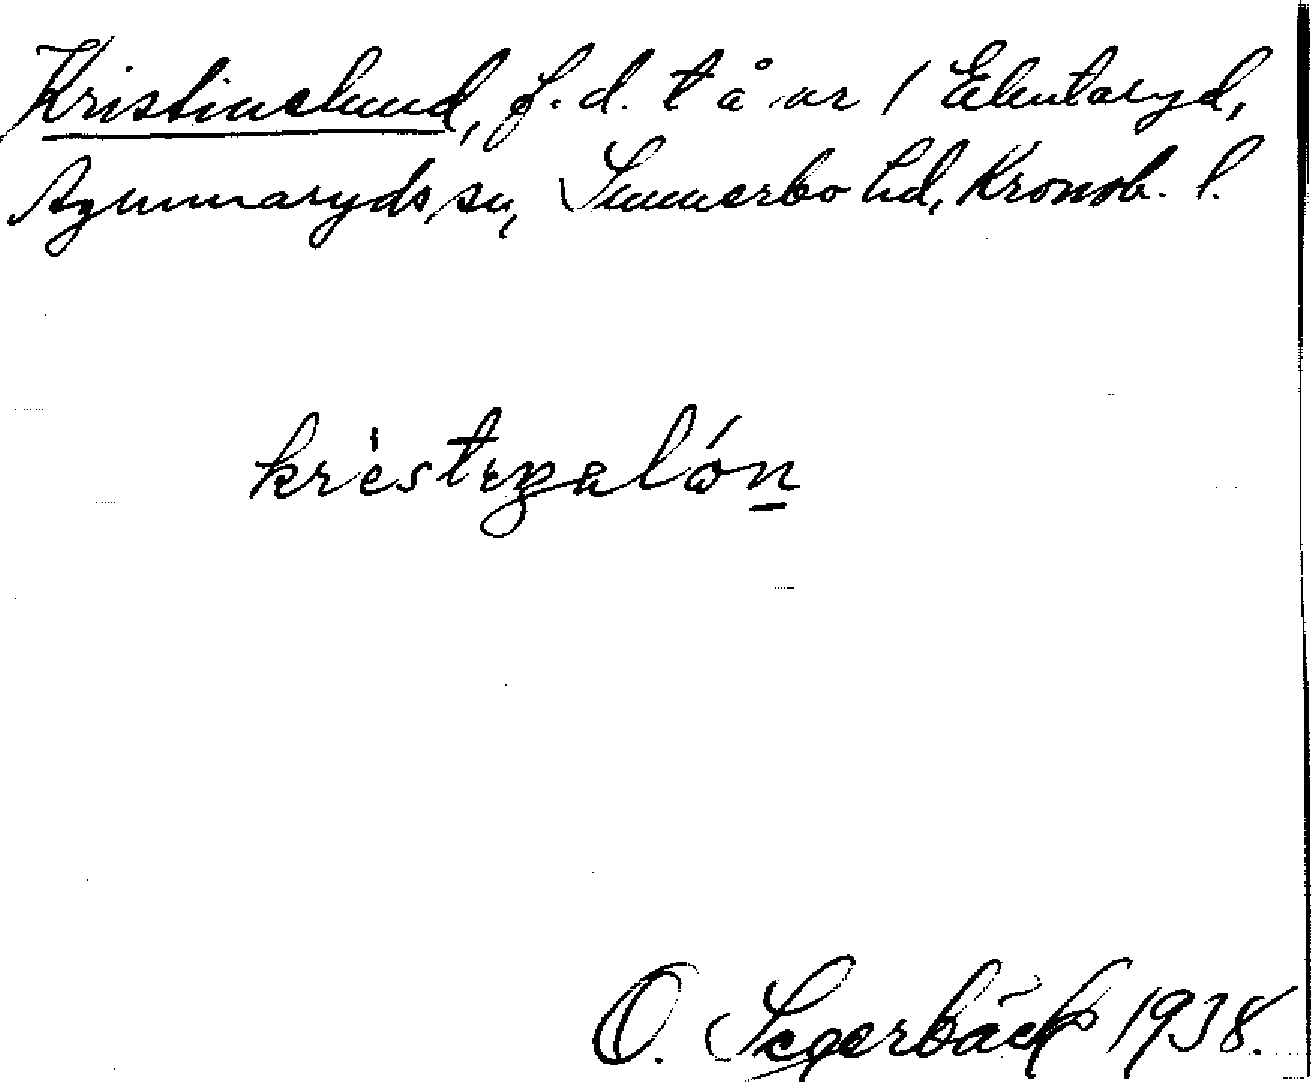 Kristinelund, f.d. t å nr 1 Ekentaryd,
Agunnaryds sn, Sunnerbo hd, Kronob. l.
krèstɩnalón
O. Segerbäck 1938.